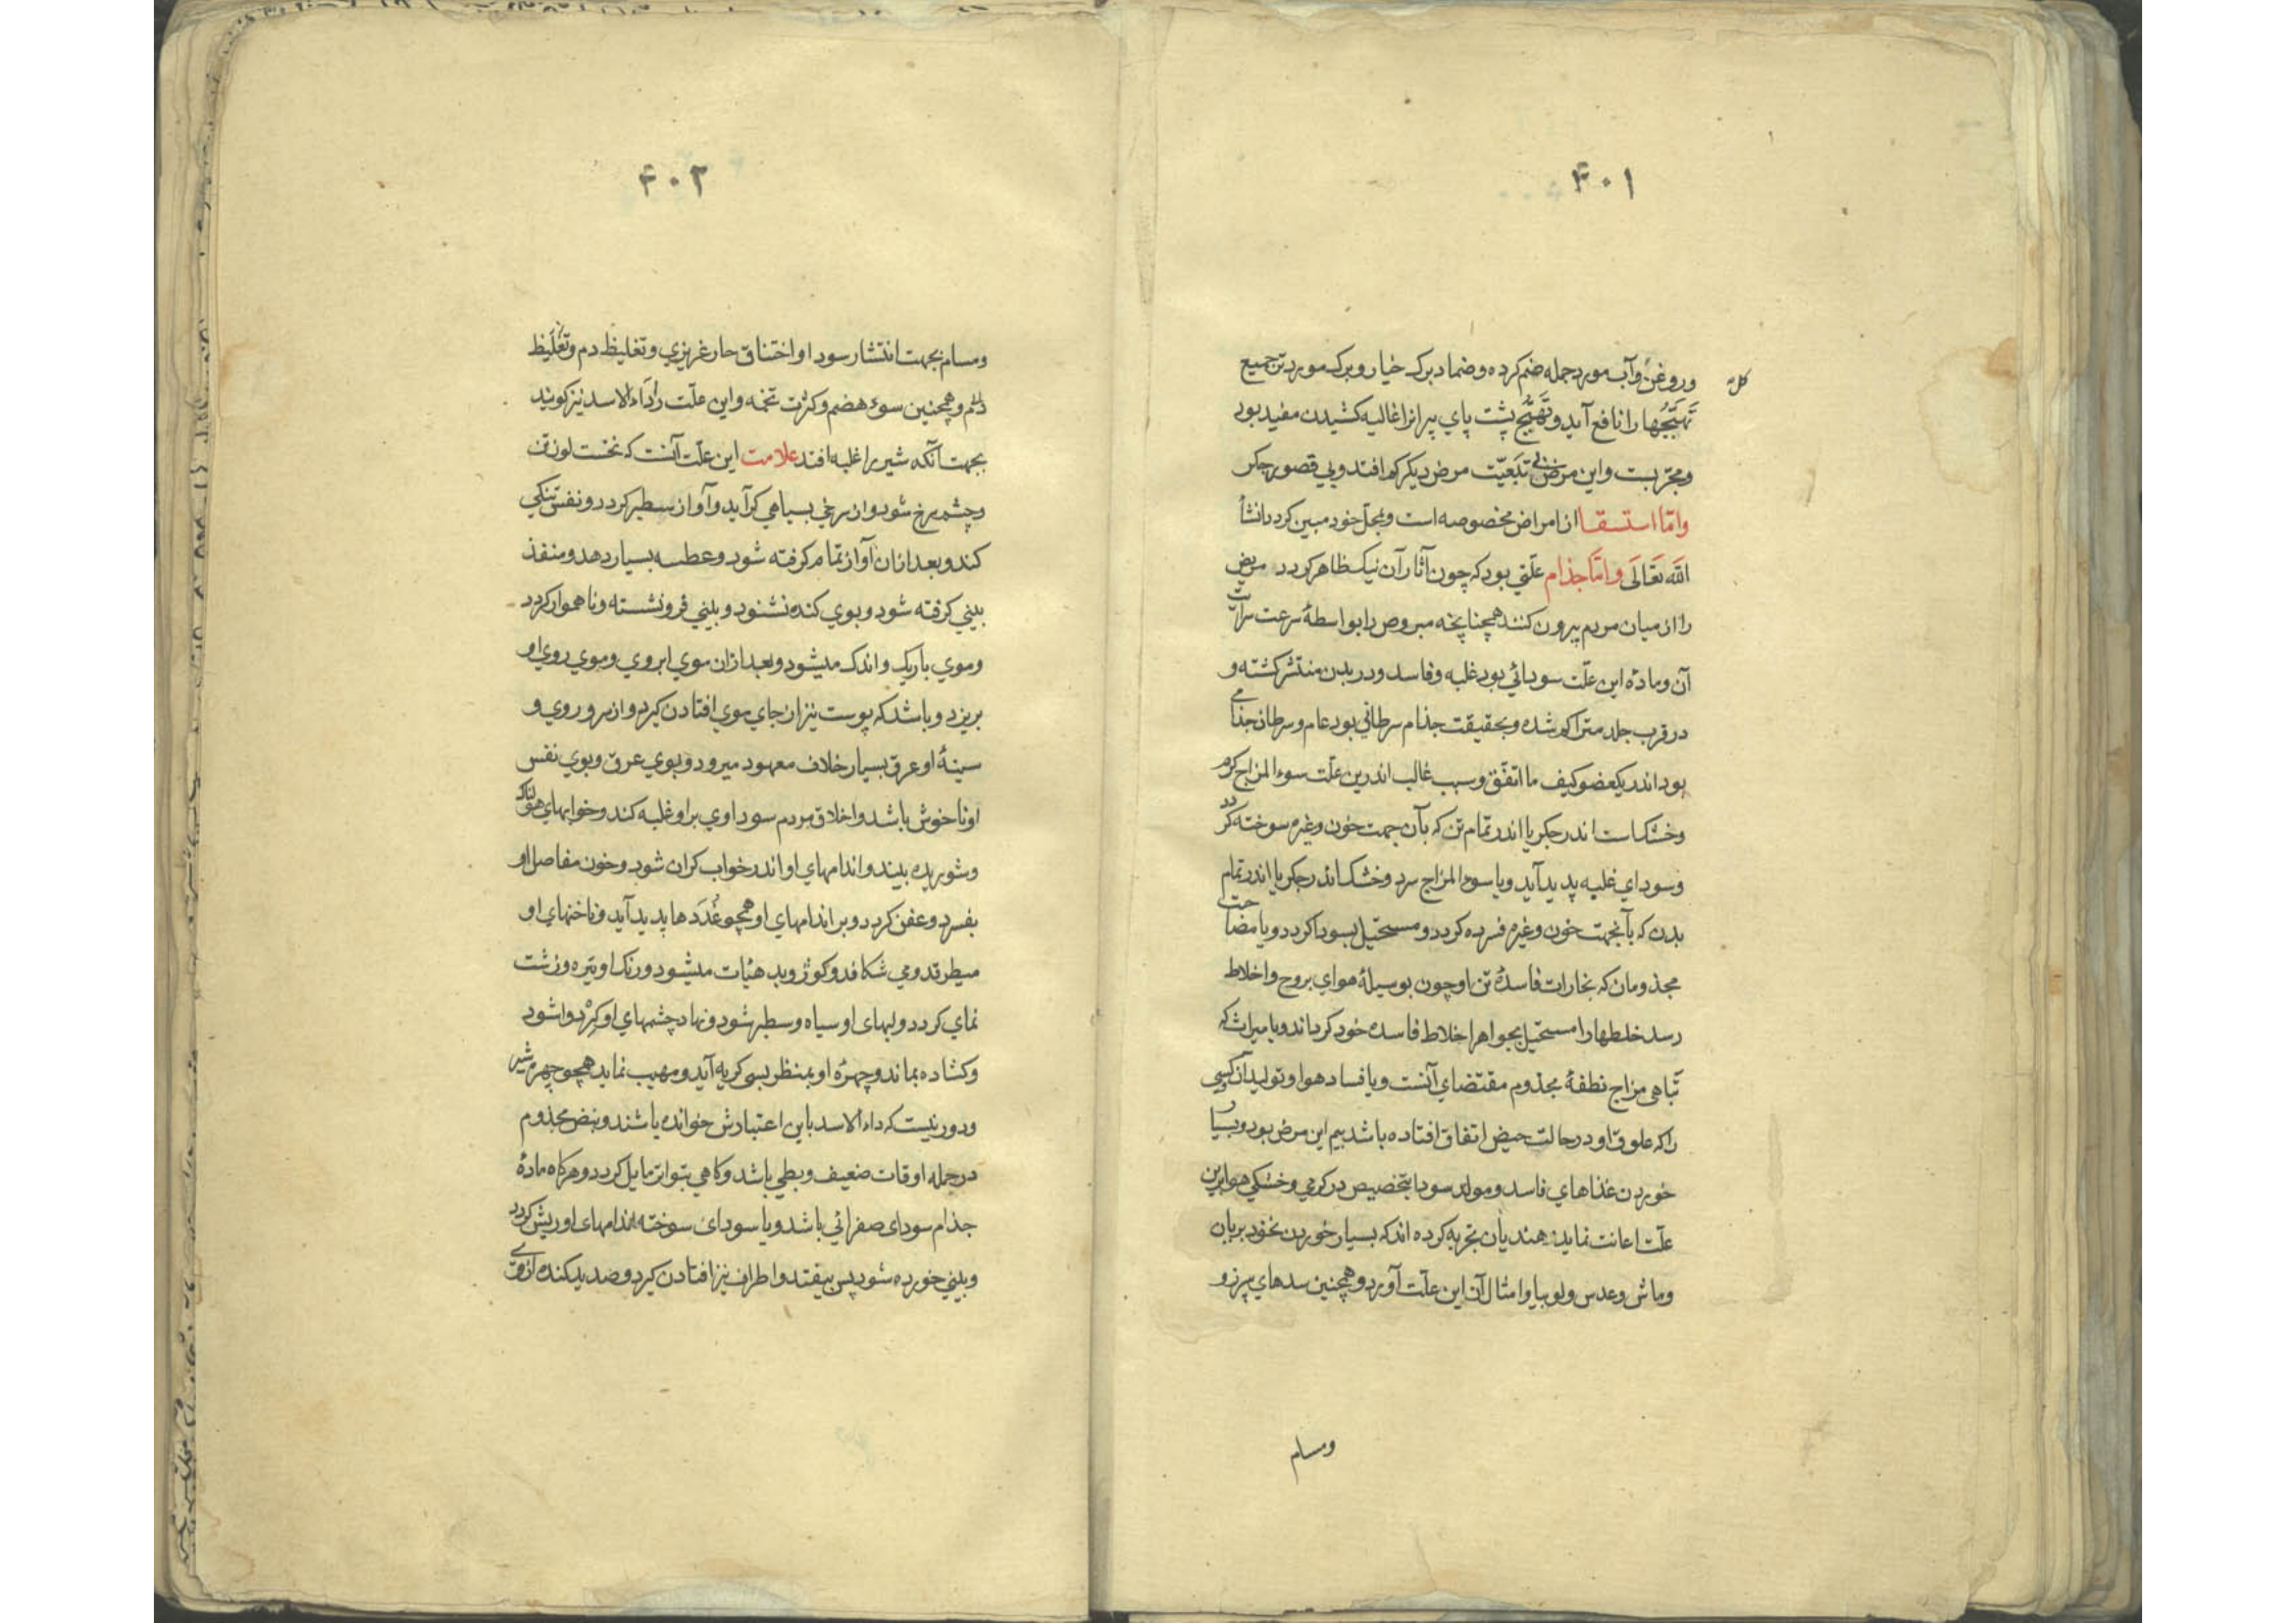 ۴۰۱
کل
وروغن وآب مورد جمله ضم کرده وضماد برک خیار وبرک مورد تر جمیع
تهیجها را نافع آید وتهیج پشت پای پیرانرا غالیه کشیدن مفید بود
ومجربست واین مرض بی تبعیت مرض دیکر کم افتد وبی قصور جکر
واما استسقا از امراض مخصوصه است وبمحل خود مبین کردد انشأ
الله تعالی واما جذام علتی بود که چون آثار آن نیک ظاهر کردد مریض
را از میان مردم بیرون کنند همچنانچه مبروص را بواسطهٔ سرعت سرایت
آن ومادهٔ این علت سودائی بود غلبه وفاسد ودر بدن منتشر کشته و
در قرب جلد متراکم شده وبحقیقت جذام سرطانی بود عام وسرطان جذامی
بود اندر یکعضو کیف ما اتفق وسبب غالب اندرین علت سوء المزاج کرم
وخشکست اندر جکر یا اندر تمام تن که بآن جهت خون وغیره سوخته کردد
وسودای غلبه پدید آید ویا سوء المزاج سرد وخشک اندر جکر یا اندر تمام
بدن که بآنجهت خون وغیره فسرده کردد ومستحیل بسودا کردد ویا مصاحبت
مجذومان که بخارات فاسدهٔ تن او چون بوسیلهٔ هوای بروح واخلاط
رسد خلطها را مستحیل بجواهر اخلاط فاسده خود کرداند ویا میراث که
تباهی مزاج نطفهٔ مجذوم مقتضای آنست ویا فساد هوا وتولید آن کسی
را که علوق او در حالت حیض اتفاق افتاده باشد بیم این مرض بود وبسیار
خوردن غذاهای فاسد ومولد سودا بتخصیص در کرمی وخشکی هوا برین
علت اعانت نماید هندیان تجربه کرده اند که بسیار خوردن نخود بریان
وماش وعدس ولوبیا وامثال آن این علت آورد وهمچنین سدهای سپرز و
ومسام
۴۰۲
ومسام بجهت انتشار سودا واختناق حار غریزی وتغلیظ دم وتغلیظ
دایم وهمچنین سوء هضم وکثرت تخمه واین علت را داء الاسد نیز کویند
بجهت آنکه شیر را غلبه افتد علامت این علت آنست که نخست لون تن
وچشم سرخ شود وان سرخی بسیاهی کراید وآواز سطبر کردد ونفس تنکی
کند وبعد ازان آواز تمام کرفته شود وعطسه بسیار دهد ومنفذ
بینی کرفته شود وبوی کنده نشنود وبینی فرونشسته وناهموار کردد
وموی باریک واندک میشود وبعد ازان موی ابروی وموی روی او
بریزد وباشد که پوست نیز ازان جای موی افتادن کیرد واز سر وروی و
سینهٔ او عرق بسیار خلاف معهود میرود وبوی عرق وبوی نفس
او ناخوش باشد واخلاق مردم سوداوی بر او غلبه کند وخوابهای هولناک
وشوریده بیند واندامهای او اندر خواب کران شود وخون مفاصل او
بفسرد وعفن کردد وبر اندامهای او همچو غددها پدید آید وناخنهای او
میطرقد ومی شکافد وکوژ وبد هیأت میشود ورنک او تیره وزشت
نمای کردد ولبهای او سیاه وسطبر شود ونهاد چشمهای او کرد واشود
وکشاده بماند وچهرهٔ او بمنظر بسی کریه آید ومهیب نماید همچو چهره شیر
ودور نیست که داء الاسد باین اعتبارش خوانده باشند ونبض مجذوم
در جمله اوقات ضعیف وبطی باشد وکاهی بتواتر مایل کردد وهرکاه مادهٔ
جذام سودای صفرائی باشد ویا سودای سوخته اندامهای او ریش کردد
وبینی خورده شود پس بیفتد واطراف نیز افتادن کیرد وصدید کنده از وی